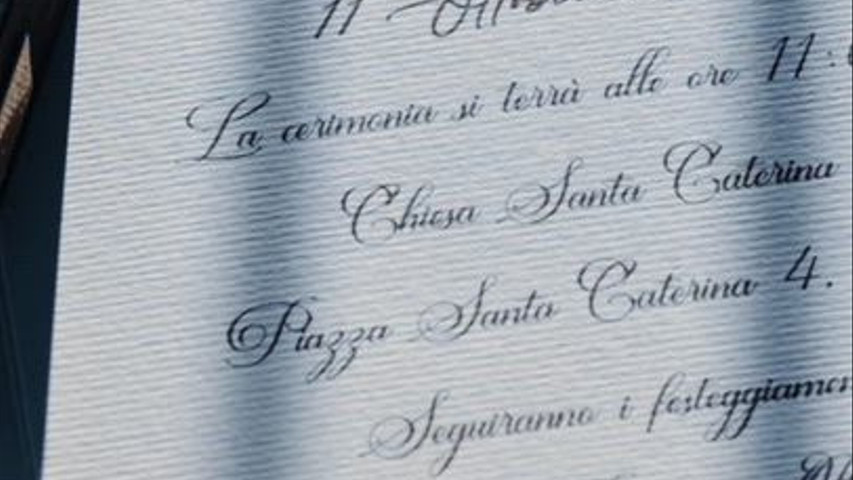 11
La cerimonia si terrà alle ore 11:
Chiesa Santa Caterina
Piazza Santa Caterina 4.
Seguiranno i